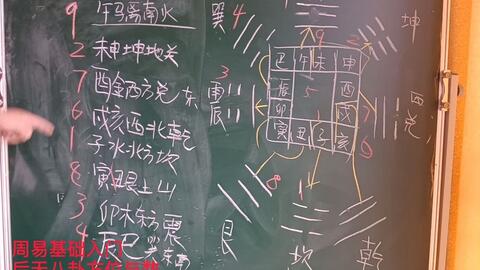 9 午马离南火
2 未申坤地关
7 酉金西方兑
6 戌亥西北乾
1 子水北方坎
8 寅丑艮土山
3 卯木东方震
4 辰巳巽东
巽 4
9
2
坤
巳 午 未 申
3
辰 5 酉
卯 戌
寅 丑 子 亥
7
西兑
6
8
1
艮
坎
乾
周易基础入门
后天八卦